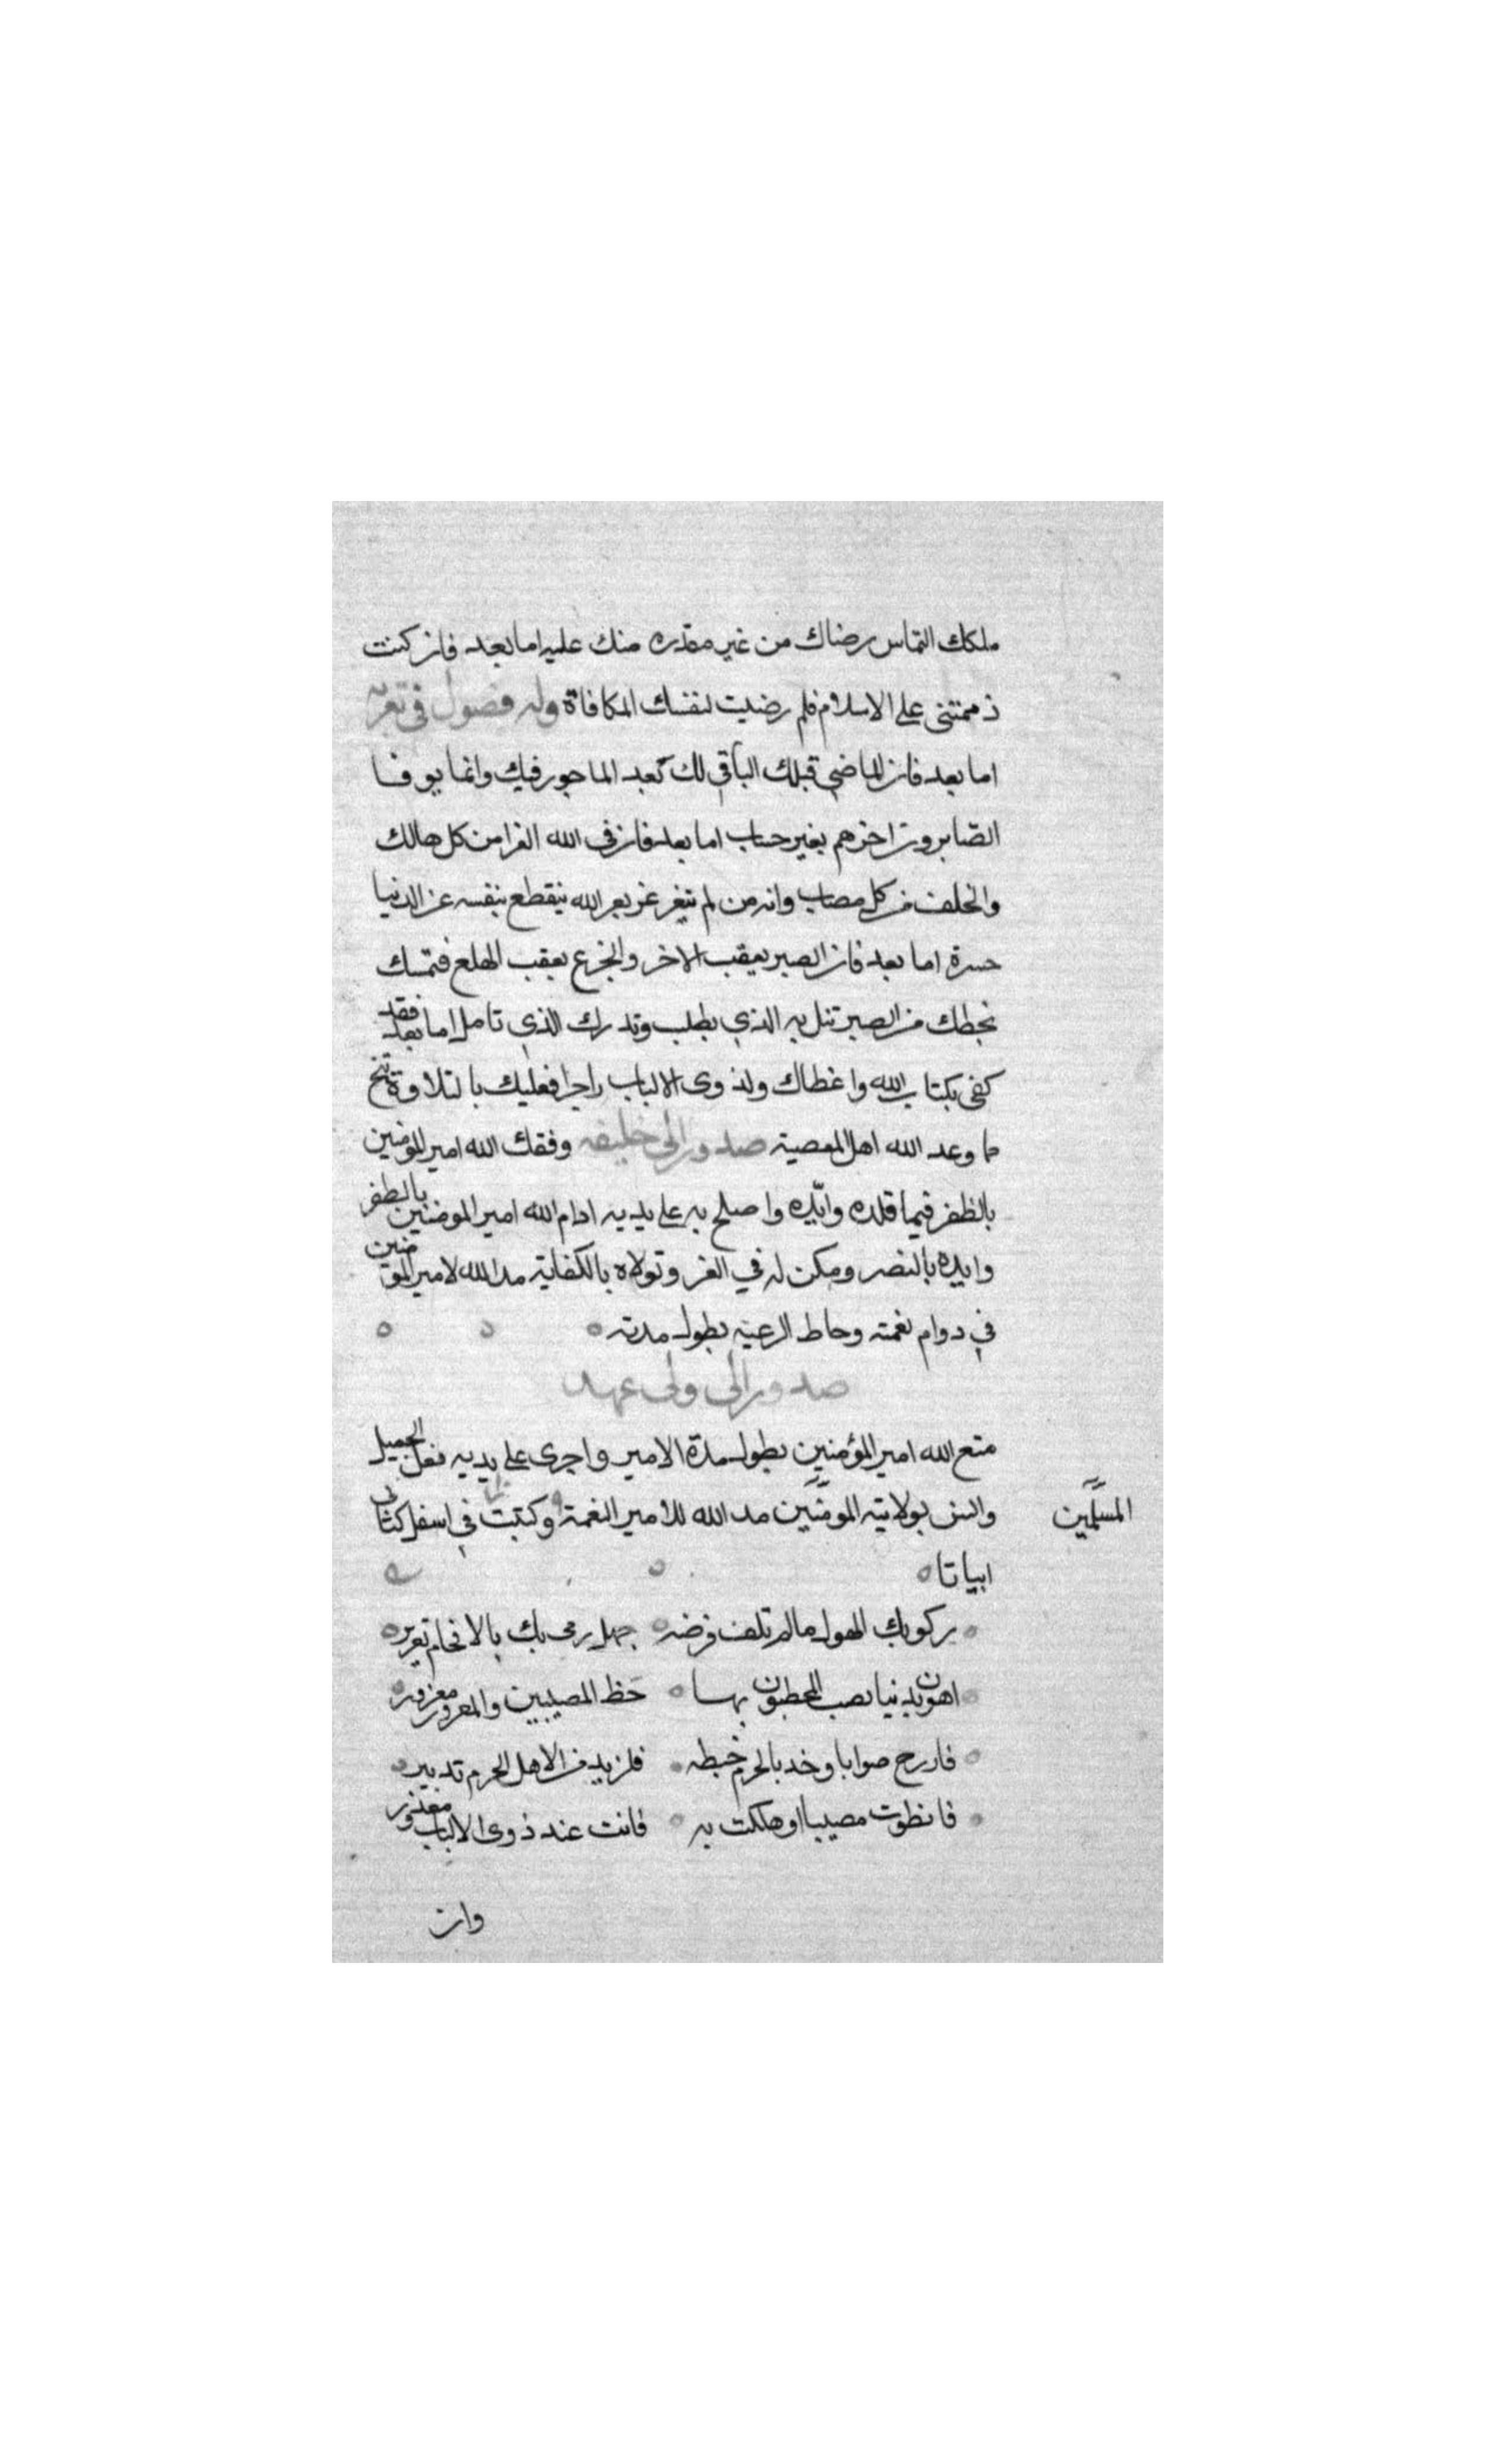 ملكك التماس رضاك من غير مقدره منك عليه اما بعد فان كنت
ذممتنى على الاسلام فلم رضيت لنفسك المكافاة وله فصول في تعزية
اما بعد فان الماضي قبلك الباقي لك كعد الماجور فيك وانما يوفا
الصّابرون اجرهم بغير حساب اما بعد فان في الله العزا من كل هالك
والخلف من كل مصاب وانه من لم يتعز بعز الله ينقطع بنفسه عن الدنيا
حسرة اما بعد فان الصبر يعقب الاخر والجزع يعقب الهلع فتمسك
بحظك من الصبر تنل به الذي يطلب وتدرك الذي تامل اما بعد فقد
كفى بكتاب الله واعظاك ولذوى الالباب زاجرا فعليك بالتلاوة تنج
ما وعد الله اهل المعصية صدور الى خليفه وفقك الله امير المومنين
بالظفر فيما قلده وايّده واصلح به على يديه ادام الله امير المومنين بالظفر
وايده بالنصر ومكن له في العز وتولاه بالكفاية مد الله لامير المومنين
في دوام نعمته وحاط الرعيه بطول مدته
صدور الى ولى عهد
متع الله امير المؤمنين بطول مدة الامير واجرى على يديه فعل الجميل
وانس بولايته المومنين مد الله للامير النعمة وكتبت في اسفل كتابى
المسلمين
ابياتا
ركوبك الهول مالم تلف فرضه جهل رمى بك بالاقحام تغرير
اهون بدنيا يصب المخطيون بها حظ المصيبين والمغرور مغرور
فازرع صوابا وخد بالحزم خبطه فلن يذم لاهل الحزم تدبير
فان ظفرت مصيبا او هلكت به فانت عند ذوى الالباب معذور
وان